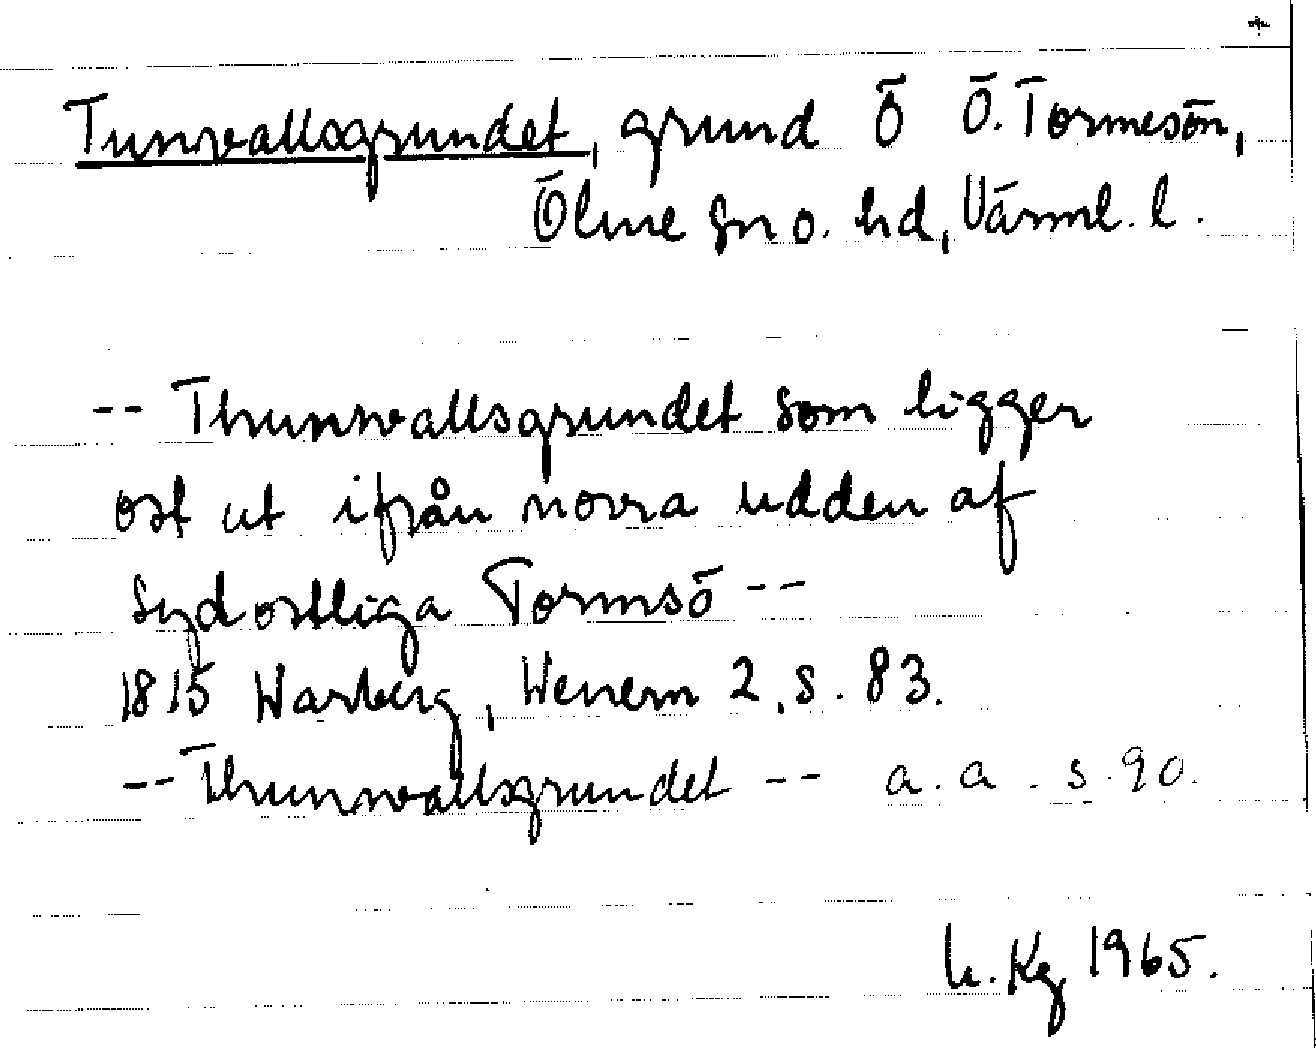 Tunvallsgrundet, grund Ö Ö. Tormesön,
Ölme sn o. hd, Värml. l.
-- Thunwallsgrundet som ligger
ost ut ifrån norra udden af
sydostliga Tormsö --
1815 Warberg, Wenern 2, s. 83.
-- Thunwallsgrundet -- a. a. s. 90.
L. Kg 1965.